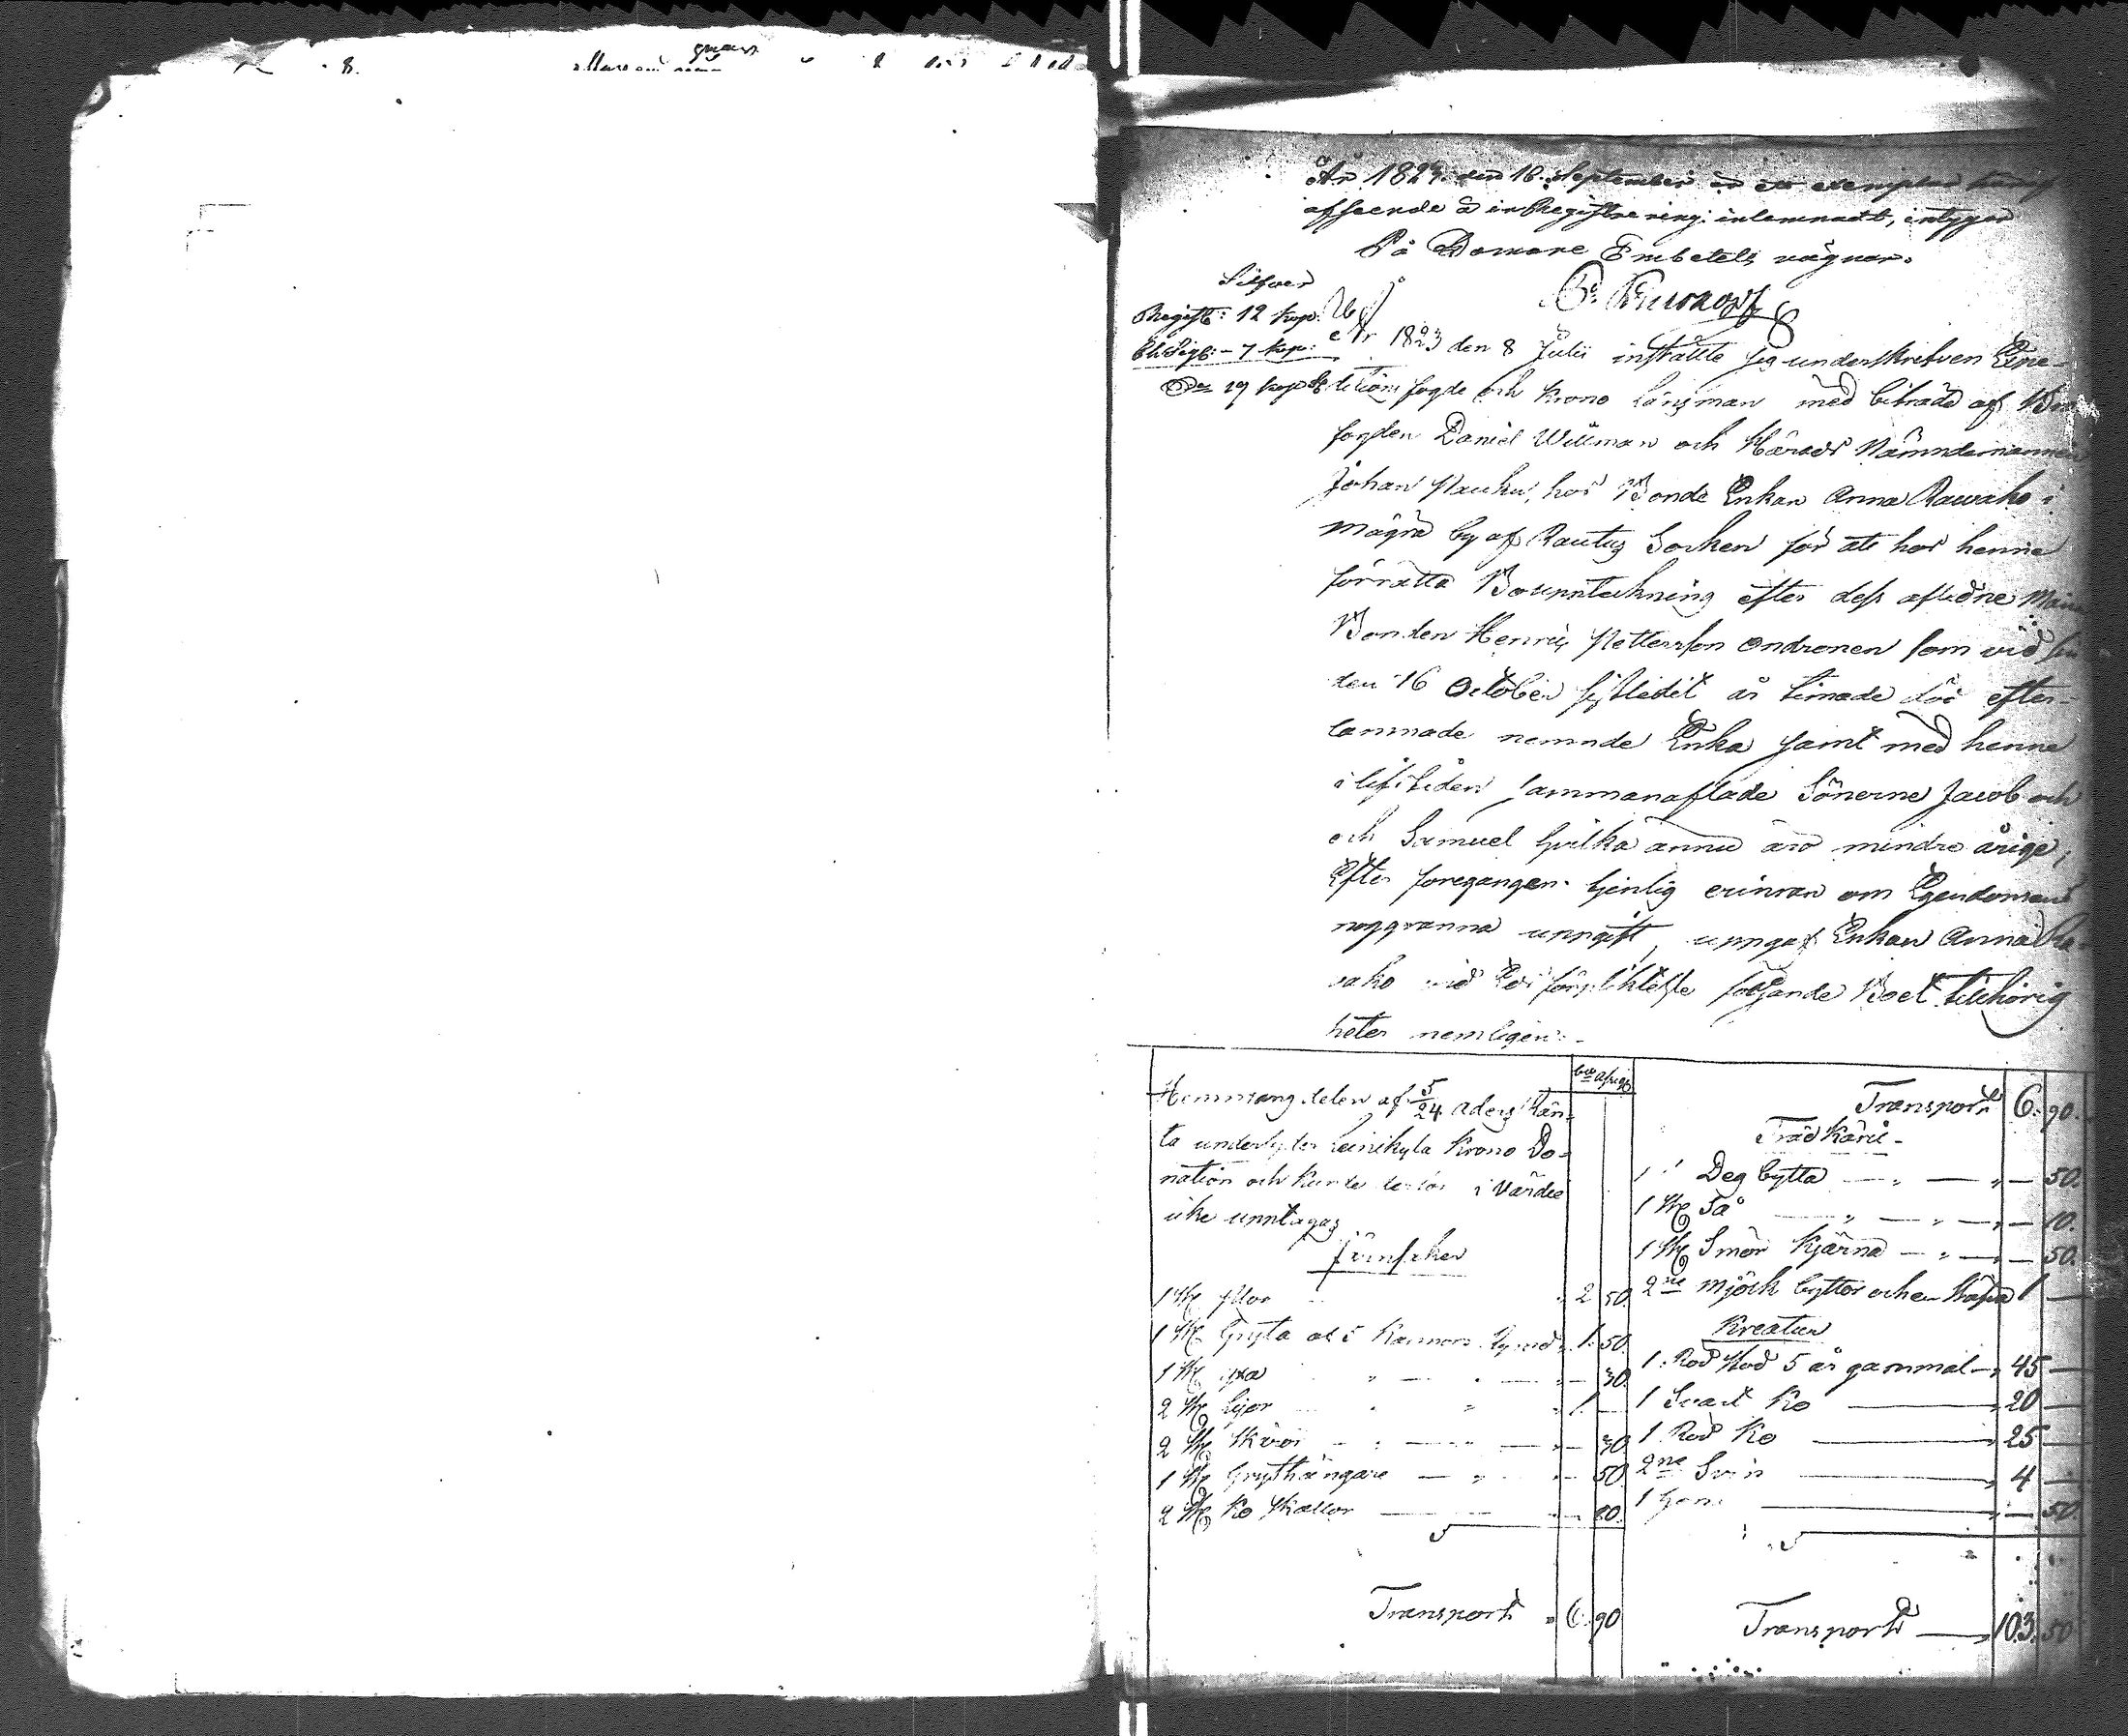 År 1824 den 16 September är ett exemplar häraf
afseende å inRegistrering inlemnadt, intygar
På Domare Embetets vägnar.
Silfver
Registr: 12 kop:
Ch. Sigil: - 7 kop:
19 kop
År 1823 den 8 Julii inställte sig underskrefven Exe-
kutions fogde och Krono Länsman med biträde af
fogden Daniel Willman och Härads Nämndemannen
Johan Paukku, hos Bonde Enkan Anna Rawako i
Mägrä by af Rautus Socken för att hos henne
förrätta Bouppteckning efter dess aflidne Man
Bonden Henric Pettersson Ondronen som vid sin
den 16 October sistledit år timade död efter-
lämnade nemnde Enka samt med henne
i lifstiden sammanaflade Sönerne Jacob och
och Samuel hvilka ännu äro mindre årige;
Efter föregången tjenlig erinran om Egendomens
noggranna uppgift, uppgaf Enkan Anna Ra-
wako vid Ed förplichtelse följande Boet tillhörig
heter nemligen:-
Hemmans delen af 5/24 Aders Rän-
ta underlyder Leinikylä Krono Do-
nation och kunde derför i Värdie
icke upptagas
Jernsaker
1 St Plog 2 50.
1 St Gryta af 5 Kannors rymd 1. 50.
1 St yxa " — " — 30.
2 St Lijor " " 1 —
2 St Skäror — " — 30.
1 St Grythängare — " — 50
2 St Ko skällor — 80.
Transport 6. 90
Transport 6. 90.
Träd Käril -
1 Deg bytta — " — " — 50.
1 St Så " — " — 10.
1 St Smör Kjärna — " — 50.
2ne mjölk byttor och en Skåpa 1 —
Kreatur
1 Röd Stod 5 år gammal — 45 —
1 Svart Ko — 20 —
1 Röd Ko — 25 —
2ne Svin — 4 —
1 — 50.
Transport — 103. 50